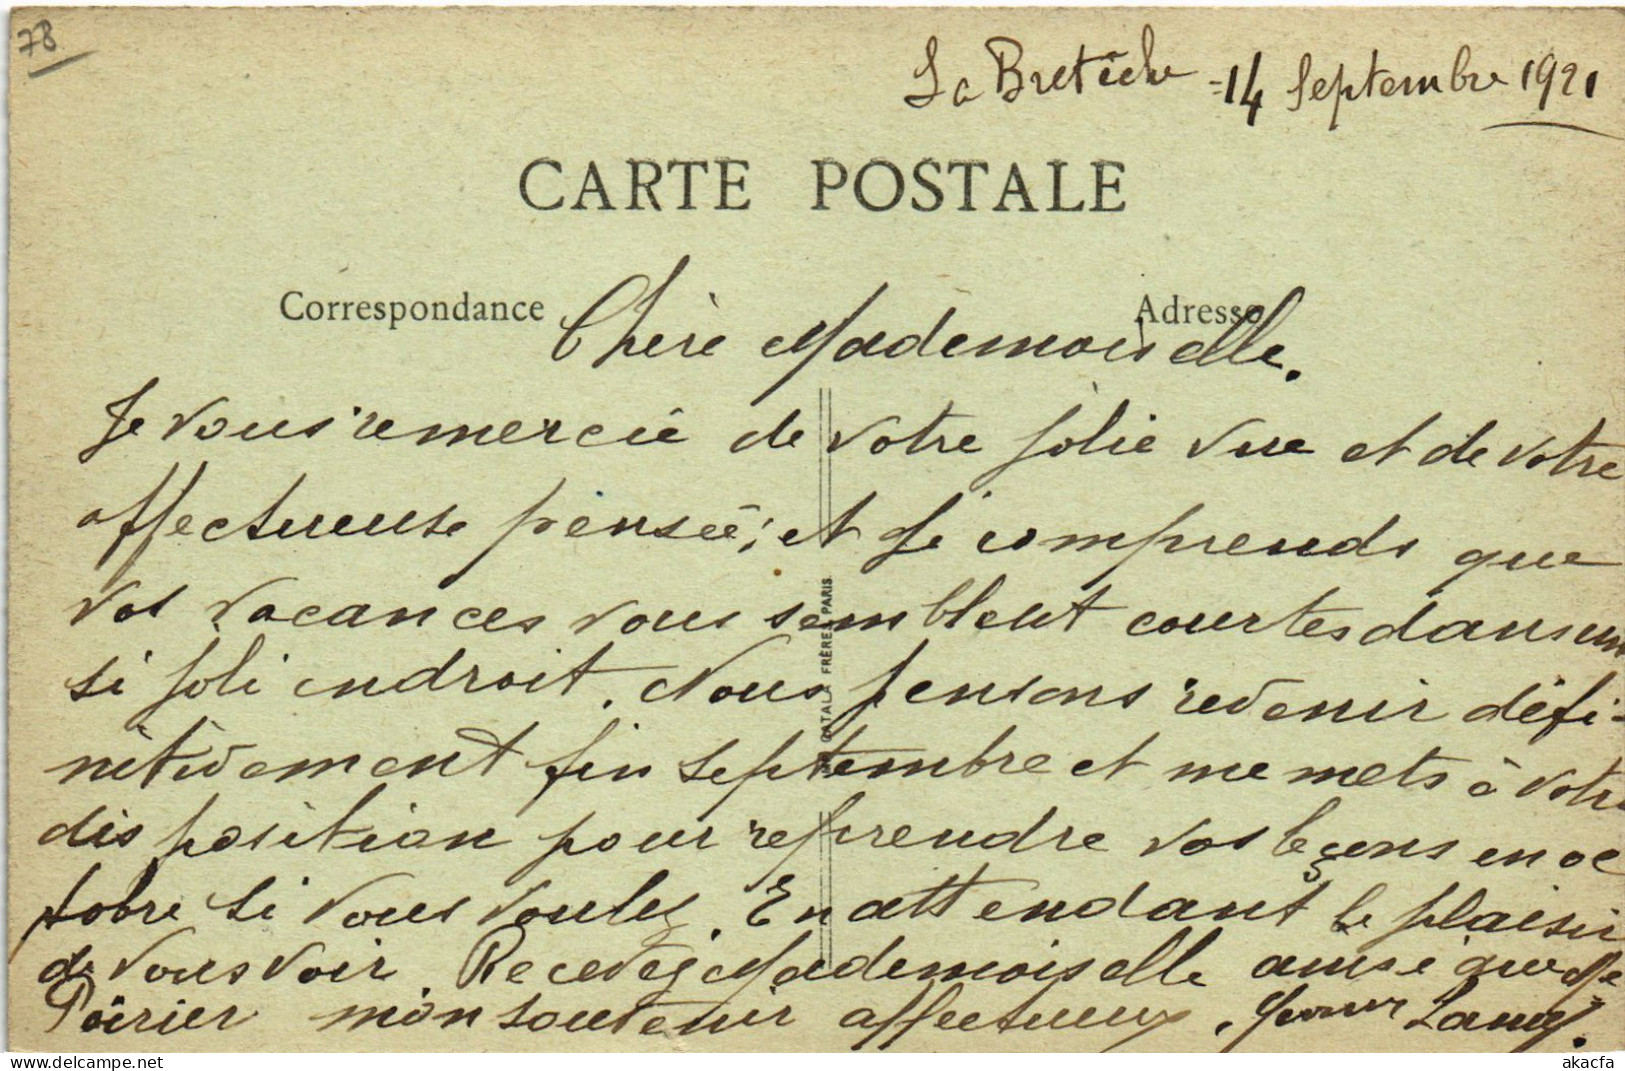 78
La Bretèche = 14 Septembre 1921
CARTE POSTALE
Correspondance
Adresse
Chère Mademoiselle.
Je vous remercie de votre jolie vue et de votre
affectueuse pensée; et je comprends que
vos vacances vous semblent courtes dans un
si joli endroit. Nous pensons revenir défi-
nitivement fin septembre et me mets à votre
disposition pour reprendre vos leçons en oc
tobre si vous voulez. En attendant le plaisir
de vous voir. Recevez Mademoiselle ainsi que Me
Poirier mon souvenir affectueux.
CATALA FRÈRES PARIS
akacfa